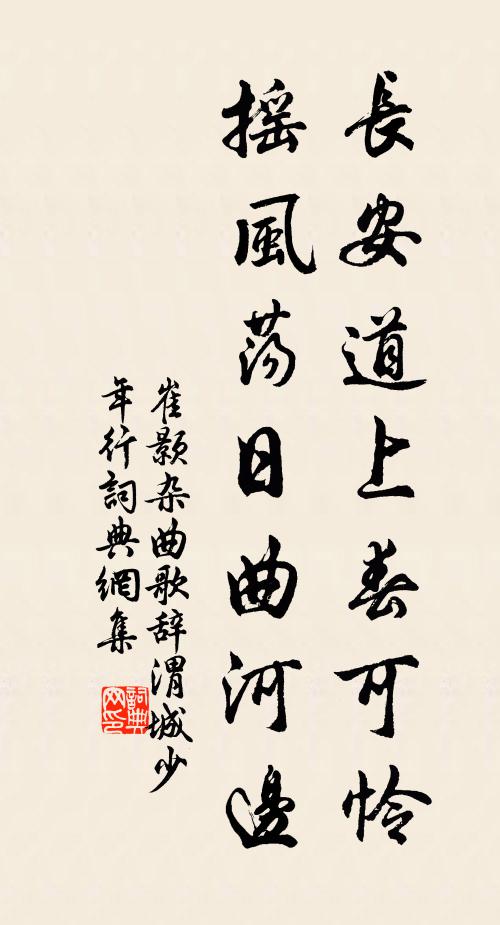 長安道上春可憐
搖風蕩日曲河邊
崔颢杂曲歌辞渭城少
年行詞典網集
詞典
网印